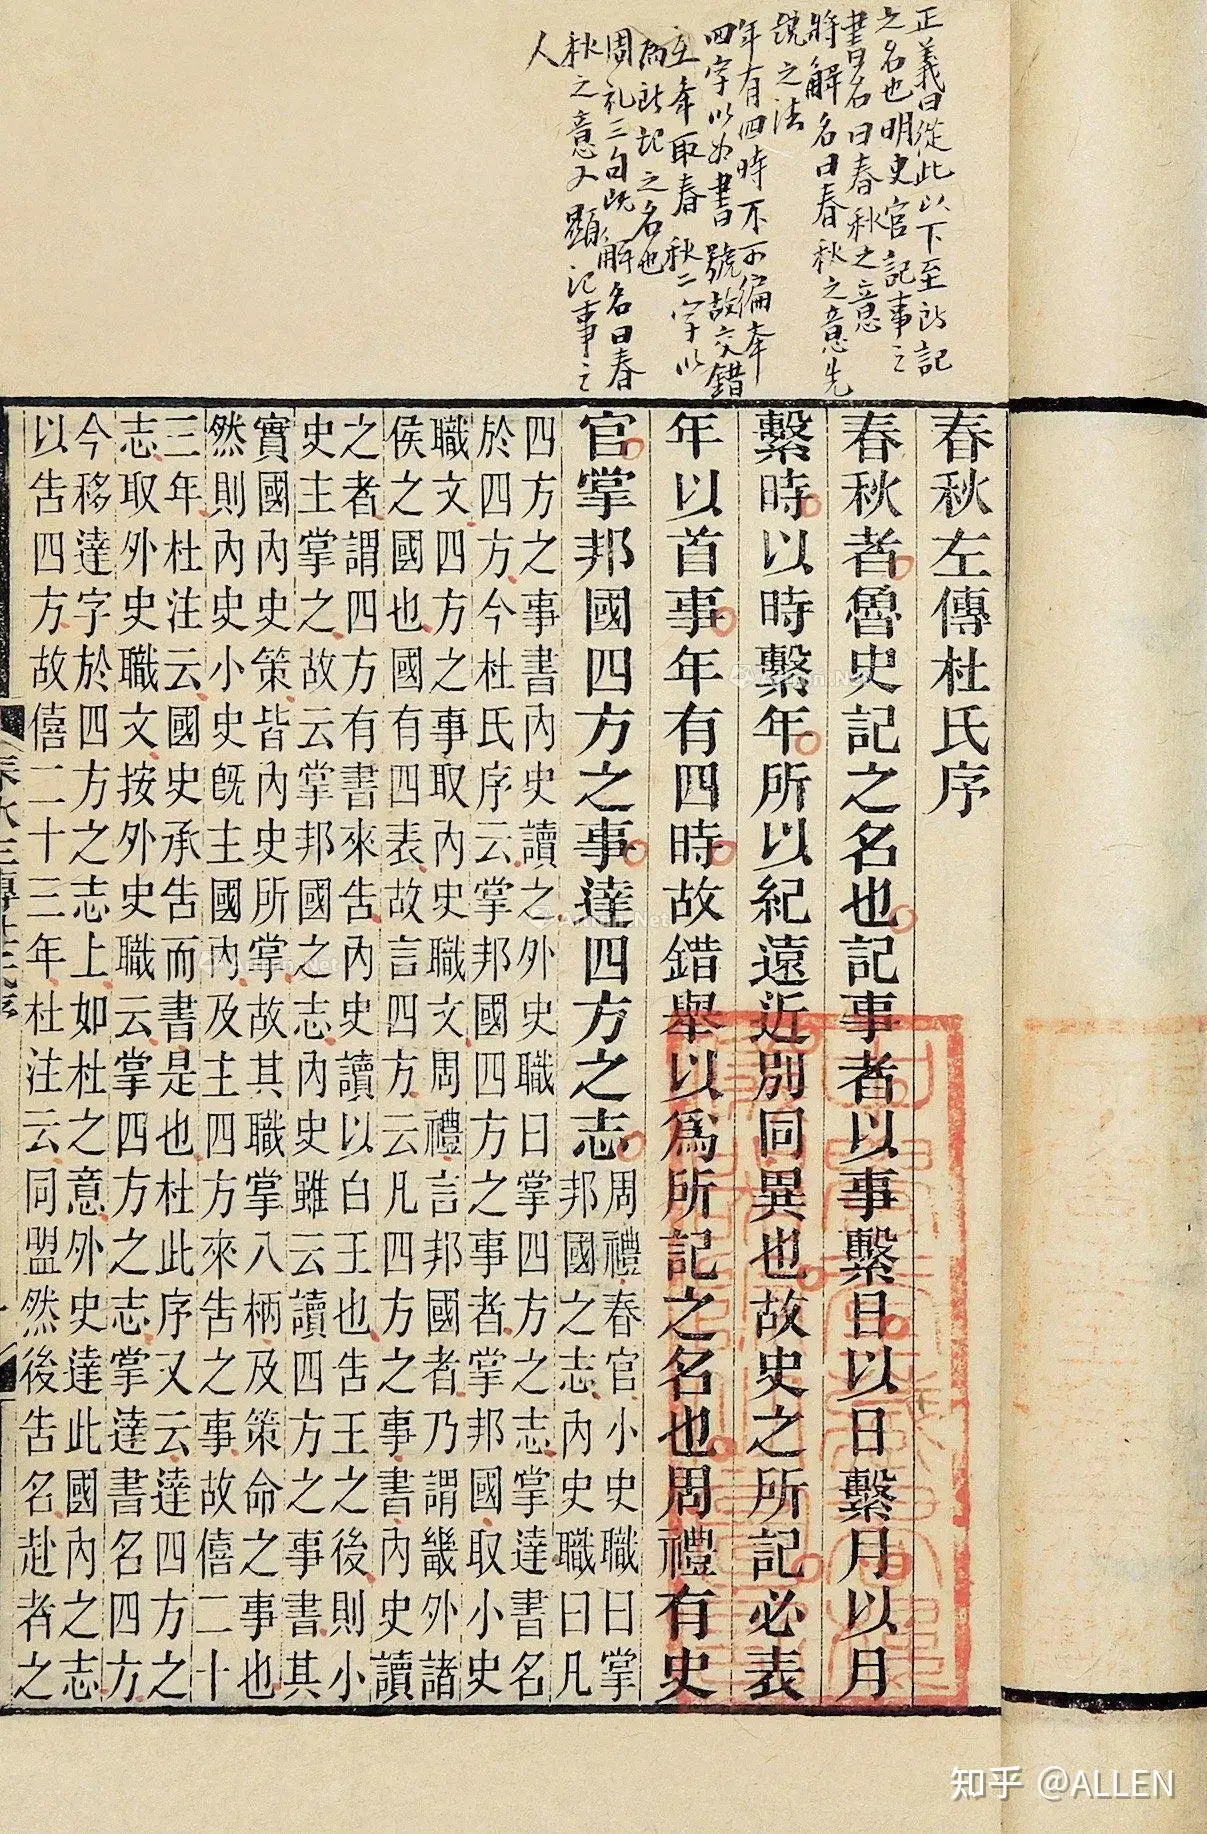 正義曰從此以下至所記
之名也明史官記事之
書名曰春秋之意
將解名曰春秋之意先
說之法
年有四時不可徧舉
四字以為書號故交錯
互舉取春秋二字以
為所記之名也
周礼三句既解名曰春
秋之意又顯記事之
人
春秋左傳杜氏序
春秋者魯史記之名也記事者以事繫日以日繫月以月
繫時以時繫年所以紀遠近別同異也故史之所記必表
年以首事年有四時故錯舉以爲所記之名也周禮有史
官掌邦國四方之事達四方之志
周禮春官小史職曰掌
邦國之志內史職曰凡
四方之事書內史讀之外史職曰掌四方之志掌達書名
於四方今杜氏序云掌邦國四方之事者掌邦國取小史
職文四方之事取內史職文周禮言邦國者乃謂畿外諸
侯之國也國有四表故言四方云凡四方之事書內史讀
之者謂四方有書來告內史讀以白王也告王之後則小
史主掌之故云掌邦國之志內史雖云讀四方之事書其
實國內史策皆內史所掌故其職掌八柄及策命之事也
然則內史小史既主國內及主四方來告之事故僖二十
三年杜注云國史承告而書是也杜此序又云達四方之
志取外史職文按外史職云掌四方之志掌達書名四方
今移達字於四方之志上如杜之意外史達此國內之志
以告四方故僖二十三年杜注云同盟然後告名赴者之
知乎 @ALLEN